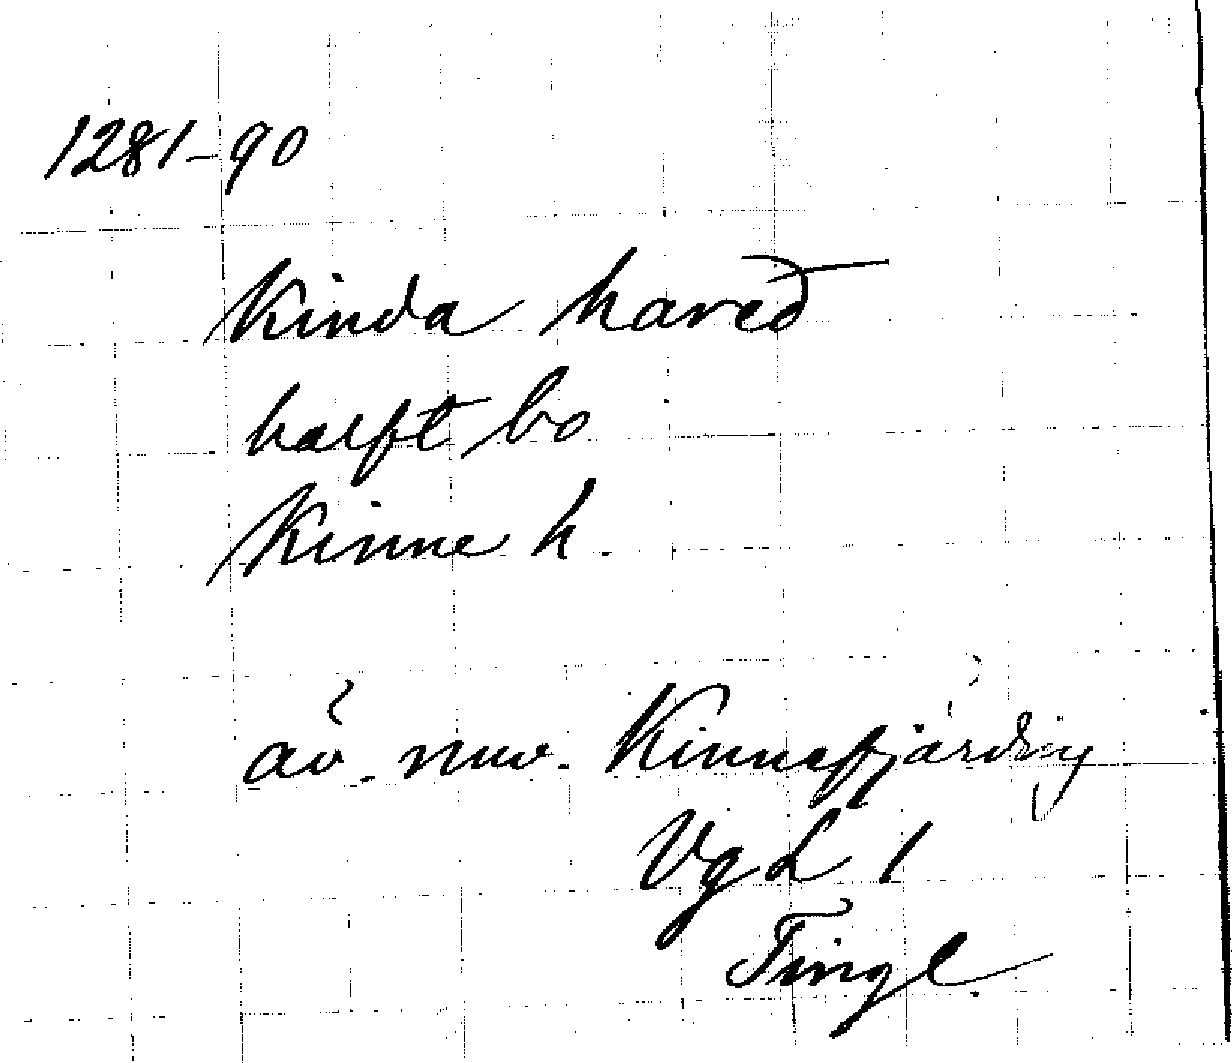 1281-90
Kinda hareð
halft bo
Kinne h.
äv. nuv. Kinnefjärding
VgL 1
Tingl.